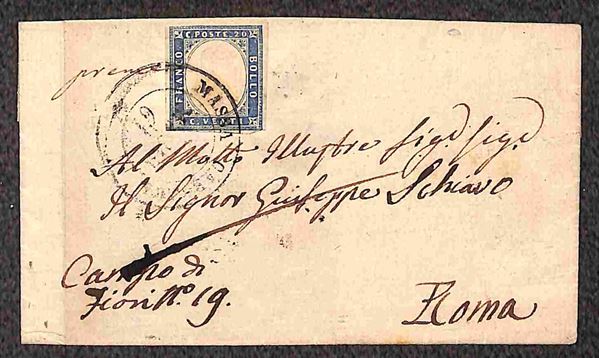 C. POSTE. 20
FRANCO
BOLLO
C. VENTI
19
MASSA
Al Molto Illustre Sigᵉ Sigᵉ
Il Signor Giuseppe Schiavo
Campo di
Fiori Nº 19.
Roma